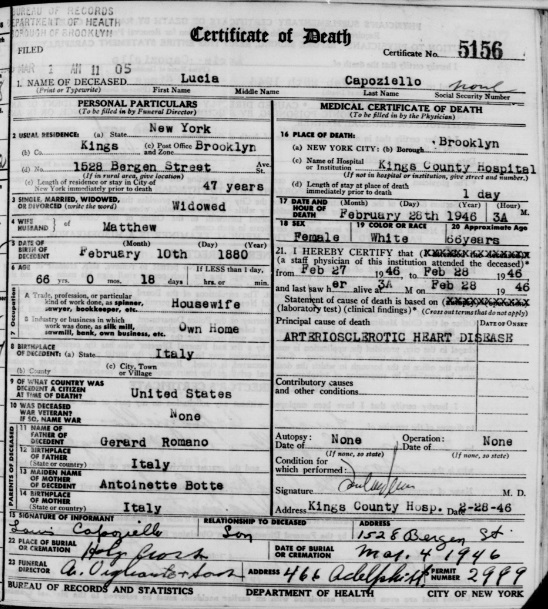 BUREAU OF RECORDS
DEPARTMENT OF HEALTH
BOROUGH OF BROOKLYN
Certificate of Death
FILED
Certificate No. 5156
MAR 1 11 05
1. NAME OF DECEASED Lucia Capoziello none
(Print or Typewrite) First Name Middle Name Last Name Social Security Number
PERSONAL PARTICULARS
(To be filled in by Funeral Director)
2 USUAL RESIDENCE: (a) State New York
(b) Co. Kings (c) Post Office and Zone Brooklyn
(d) No. 1528 Bergen Street Ave. St.
(If in rural area, give location)
(e) Length of residence or stay in City of New York immediately prior to death 47 years
3 SINGLE, MARRIED, WIDOWED, OR DIVORCED (write the word) Widowed
4 WIFE HUSBAND } of Matthew
5 DATE OF BIRTH OF DECEDENT (Month) (Day) (Year)
February 10th 1880
6 AGE If LESS than 1 day,
66 yrs. 0 mos. 18 days hrs. or min.
7 Occupation
A Trade, profession, or particular kind of work done, as spinner, sawyer, bookkeeper, etc. Housewife
B Industry or business in which work was done, as silk mill, sawmill, bank, own business, etc. Own Home
8 BIRTHPLACE OF DECEDENT: (a) State Italy
(b) County (c) City, Town or Village
9 OF WHAT COUNTRY WAS DECEDENT A CITIZEN AT TIME OF DEATH? United States
10 WAS DECEASED WAR VETERAN? IF SO, NAME WAR None
PARENTS OF DECEASED
11 NAME OF FATHER OF DECEDENT Gerard Romano
12 BIRTHPLACE OF FATHER (State or country) Italy
13 MAIDEN NAME OF MOTHER OF DECEDENT Antoinette Botte
14 BIRTHPLACE OF MOTHER (State or country) Italy
MEDICAL CERTIFICATE OF DEATH
(To be filled in by the Physician)
16 PLACE OF DEATH:
(a) NEW YORK CITY: (b) Borough Brooklyn
(c) Name of Hospital or Institution Kings County Hospital
(If not in hospital or institution, give street and number.)
(d) Length of stay at place of death immediately prior to death 1 day
17 DATE AND HOUR OF DEATH (Month) (Day) (Year) (Hour)
February 28th 1946 3A M.
18 SEX 19 COLOR OR RACE 20 Approximate Age
Female White 66years
21. I HEREBY CERTIFY that
(a staff physician of this institution attended the deceased)*
from Feb 27 1946 to Feb 28 1946
and last saw her alive at 3A M on Feb 28 1946
Statement of cause of death is based on
(laboratory test) (clinical findings)* (Cross out terms that do not apply)
Principal cause of death DATE OF ONSET
ARTERIOSCLEROTIC HEART DISEASE
Contributory causes and other conditions
Autopsy: Date of None Operation: Date of None
(If none, so state) (If none, so state)
Condition for which performed:
Signature M. D.
Address Kings County Hosp. Date 2-28-46
SIGNATURE OF INFORMANT RELATIONSHIP TO DECEASED ADDRESS
Louis Capoziello Son 1528 Bergen St
22 PLACE OF BURIAL OR CREMATION Holy Cross DATE OF BURIAL OR CREMATION Mar. 4, 1946
23 FUNERAL DIRECTOR ADDRESS 466 Adelphi St PERMIT NUMBER 2999
BUREAU OF RECORDS AND STATISTICS DEPARTMENT OF HEALTH CITY OF NEW YORK